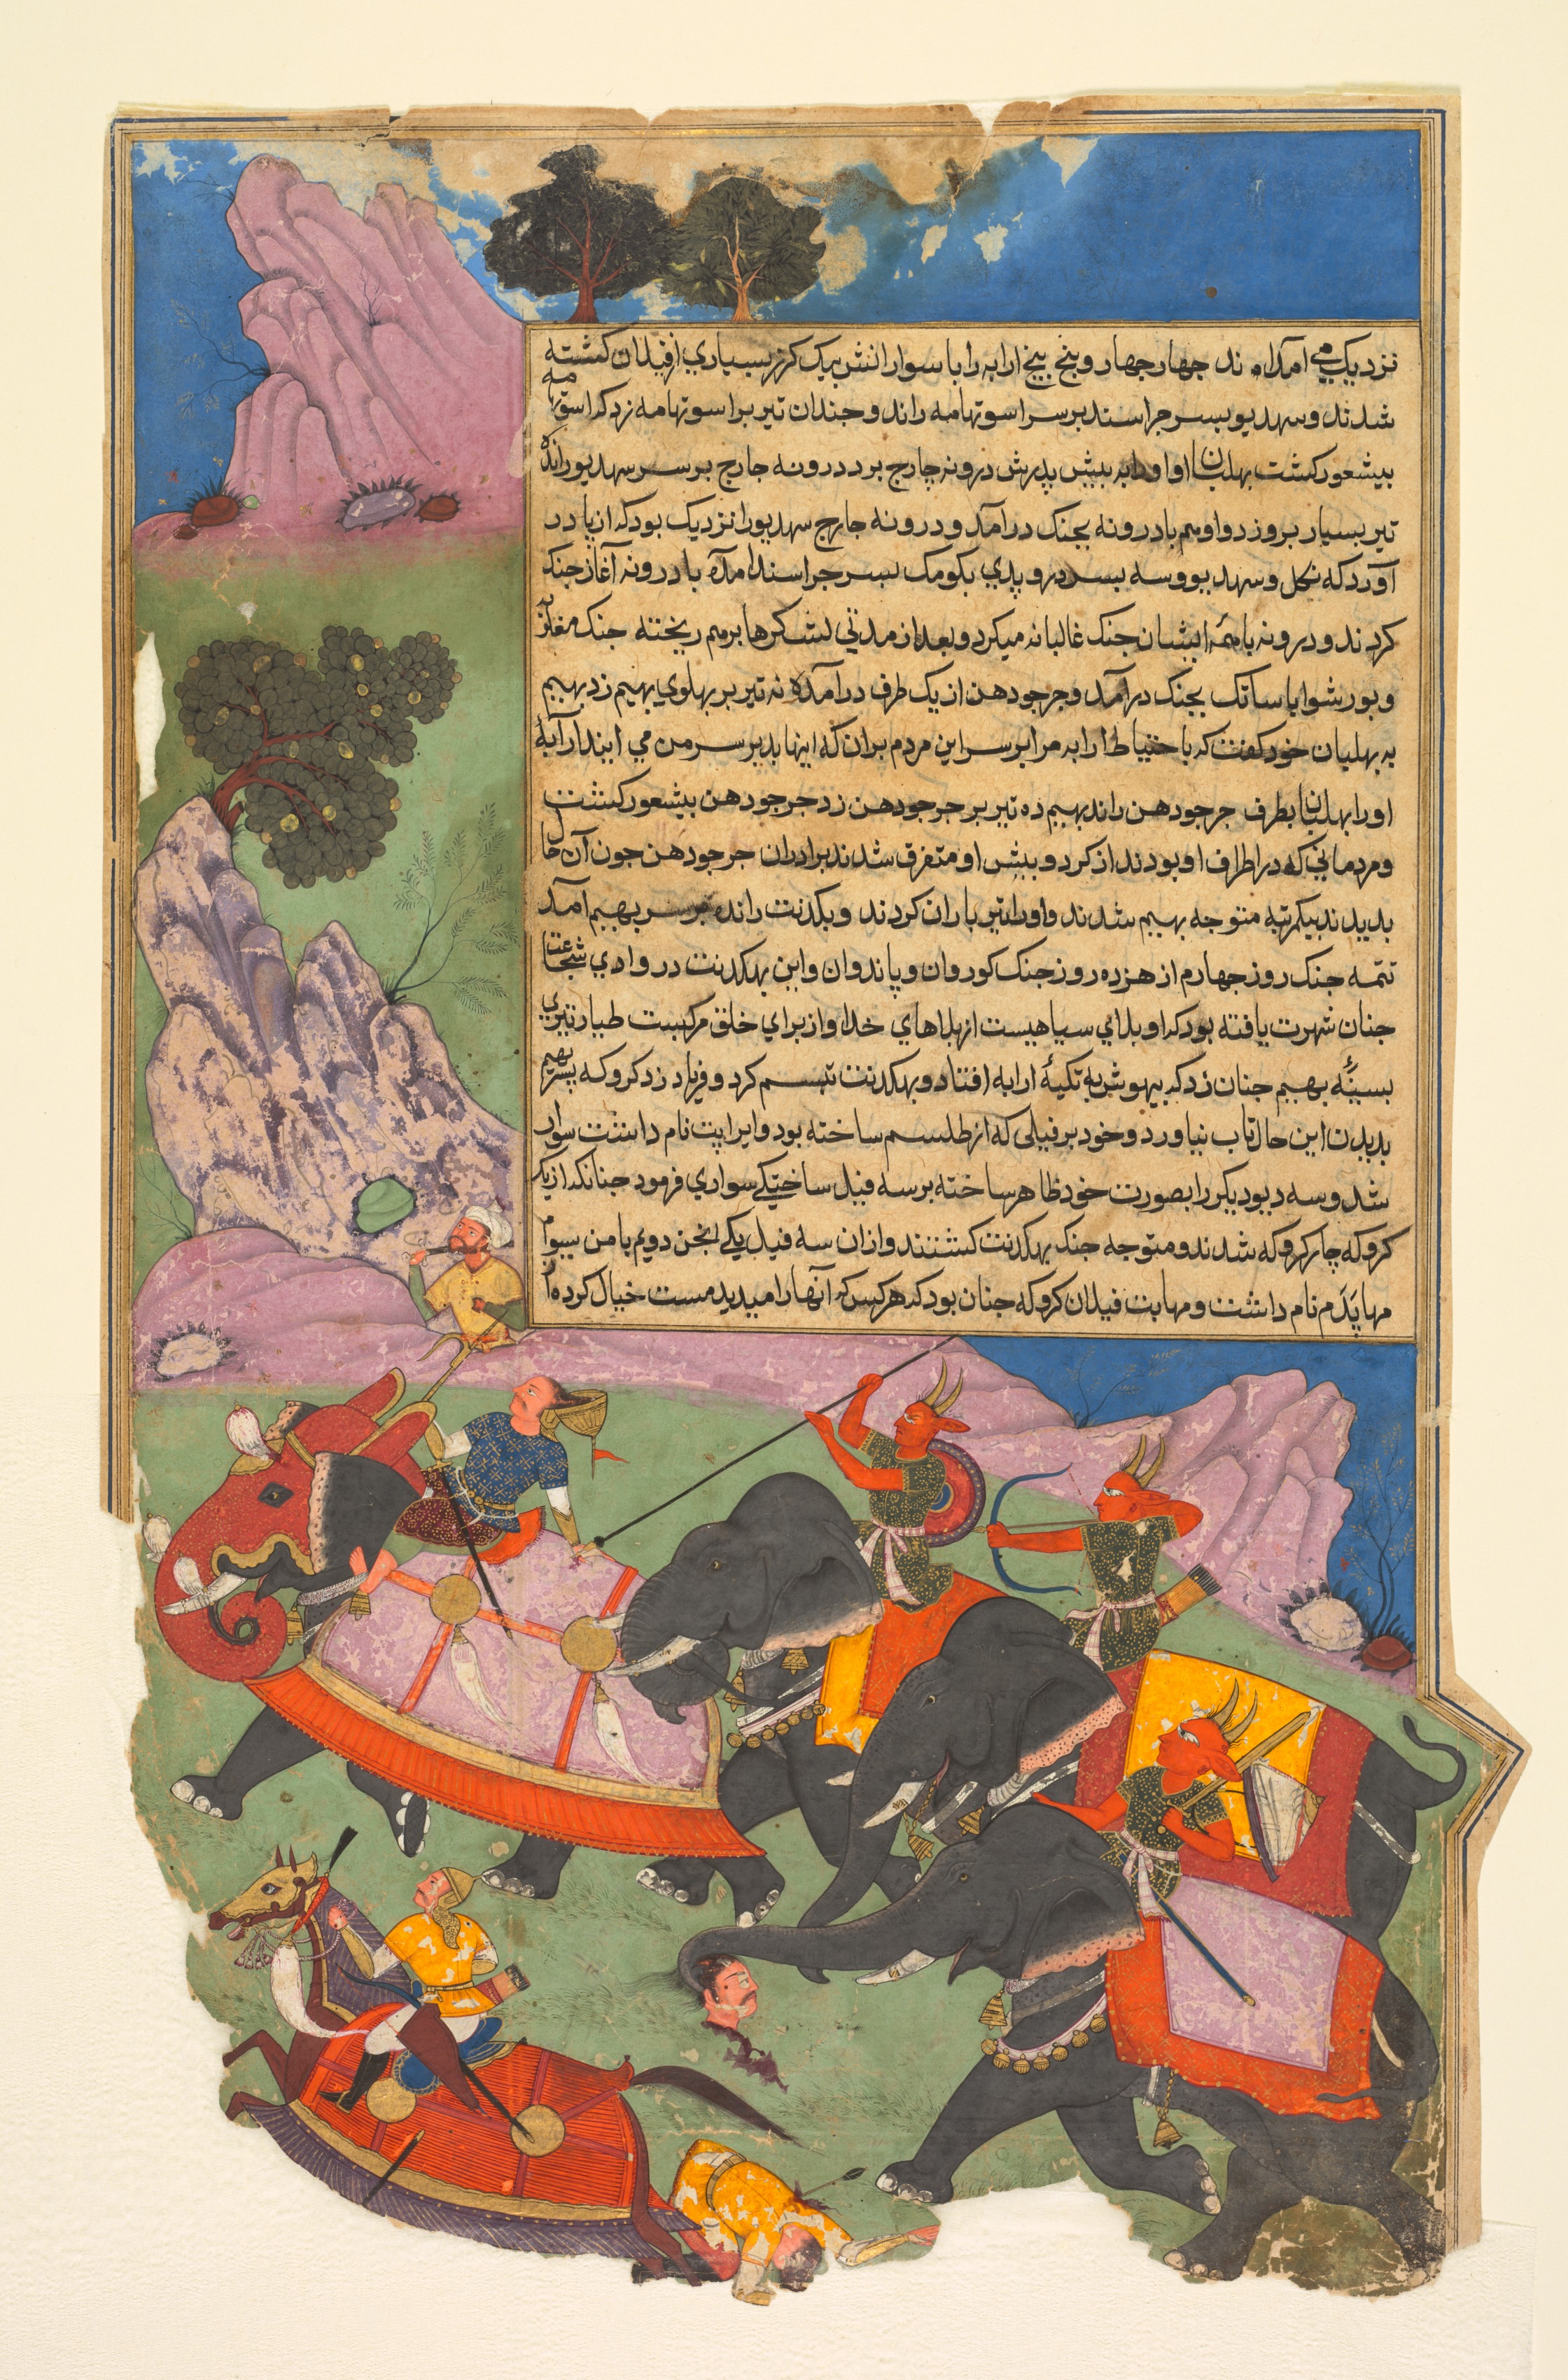 نزدیک می آمدند جهار جهار و پنج پنج ارابه را با سوارانش بیک کرز بسیاري از فیلان کشته
شدند و سهدیو بسر جراسند بر سر اسوتهامه راند و جندان تیر بر اسوتهامه زد که اسوتهامه
بیشعور کشت بهلبان او اورا به بیش بدرش درونه چارج برد درونه جارج بر سر سهدیو رانده
تیر بسیار برو زد و او هم با درونه بجنک درآمد و درونه جارج سهدیو را نزدیک بود که از پا در
آورد که نکل و سهدیو و سه بسر دروپدي بکومک بسر جراسند آمده با درونه آغاز جنک
کردند و درونه با همهٔ ایشان جنک غالبانه میکرد و بعد از مدتي لشکرها برهم ریخته جنک مغلوبه
و بورشوا با ساتک بجنک درآمد و جرجودهن از یک طرف درآمده نه تیر بر پهلوي بهیم زد بهیم
به بهلبان خود کفت که باحتیاط ارابه مرا بر سر این مردم بران که اینها بدیر سر من مي آیند ارابهٔ
اورا بهلبان بطرف جرجودهن راند بهیم ده تیر بر جرجودهن زد جرجودهن بیشعور کشت
و مردماني که در اطراف او بودند از کرد و بیش او متفرق شدند برادران جرجودهن جون آن حال
بدیدند بیکمرتبه متوجه بهیم شدند و اورا تیر باران کردند و بکدنت رانده بر سر بهیم آمد
تتمه جنک روز جهارم از هزده روز جنک کوروان و پاندوان و این بهکدنت در وادي شجاعت
جنان شهرت یافته بود که او بلاي سیاهیست از بلاهاي خدا و از براي خلق مرکیست طیار تیري
بسینهٔ بهیم جنان زد که بیهوش به تکیهٔ ارابه افتاد و بهکدنت تبسم کرد و فریاد زد کروکه پسر بهیم
بدیدن این حال تاب نیاورد و خود بر فیلي که از طلسم ساخته بود و ایراپت نام داشت سوار
شد و سه دیو دیکر را بصورت خود ظاهر ساخته بر سه فیل ساختکي سواري فرمود جنانکه از یک
کروکه چار کروکه شدند و متوجه جنک بهکدنت کشتند و از آن سه فیل یکي انجن دویم بامن سیوم
مهاپدم نام داشت و مهابت فیلان کروکه جنان بود که هر کس که آنها را میدید مست خیال کرده از